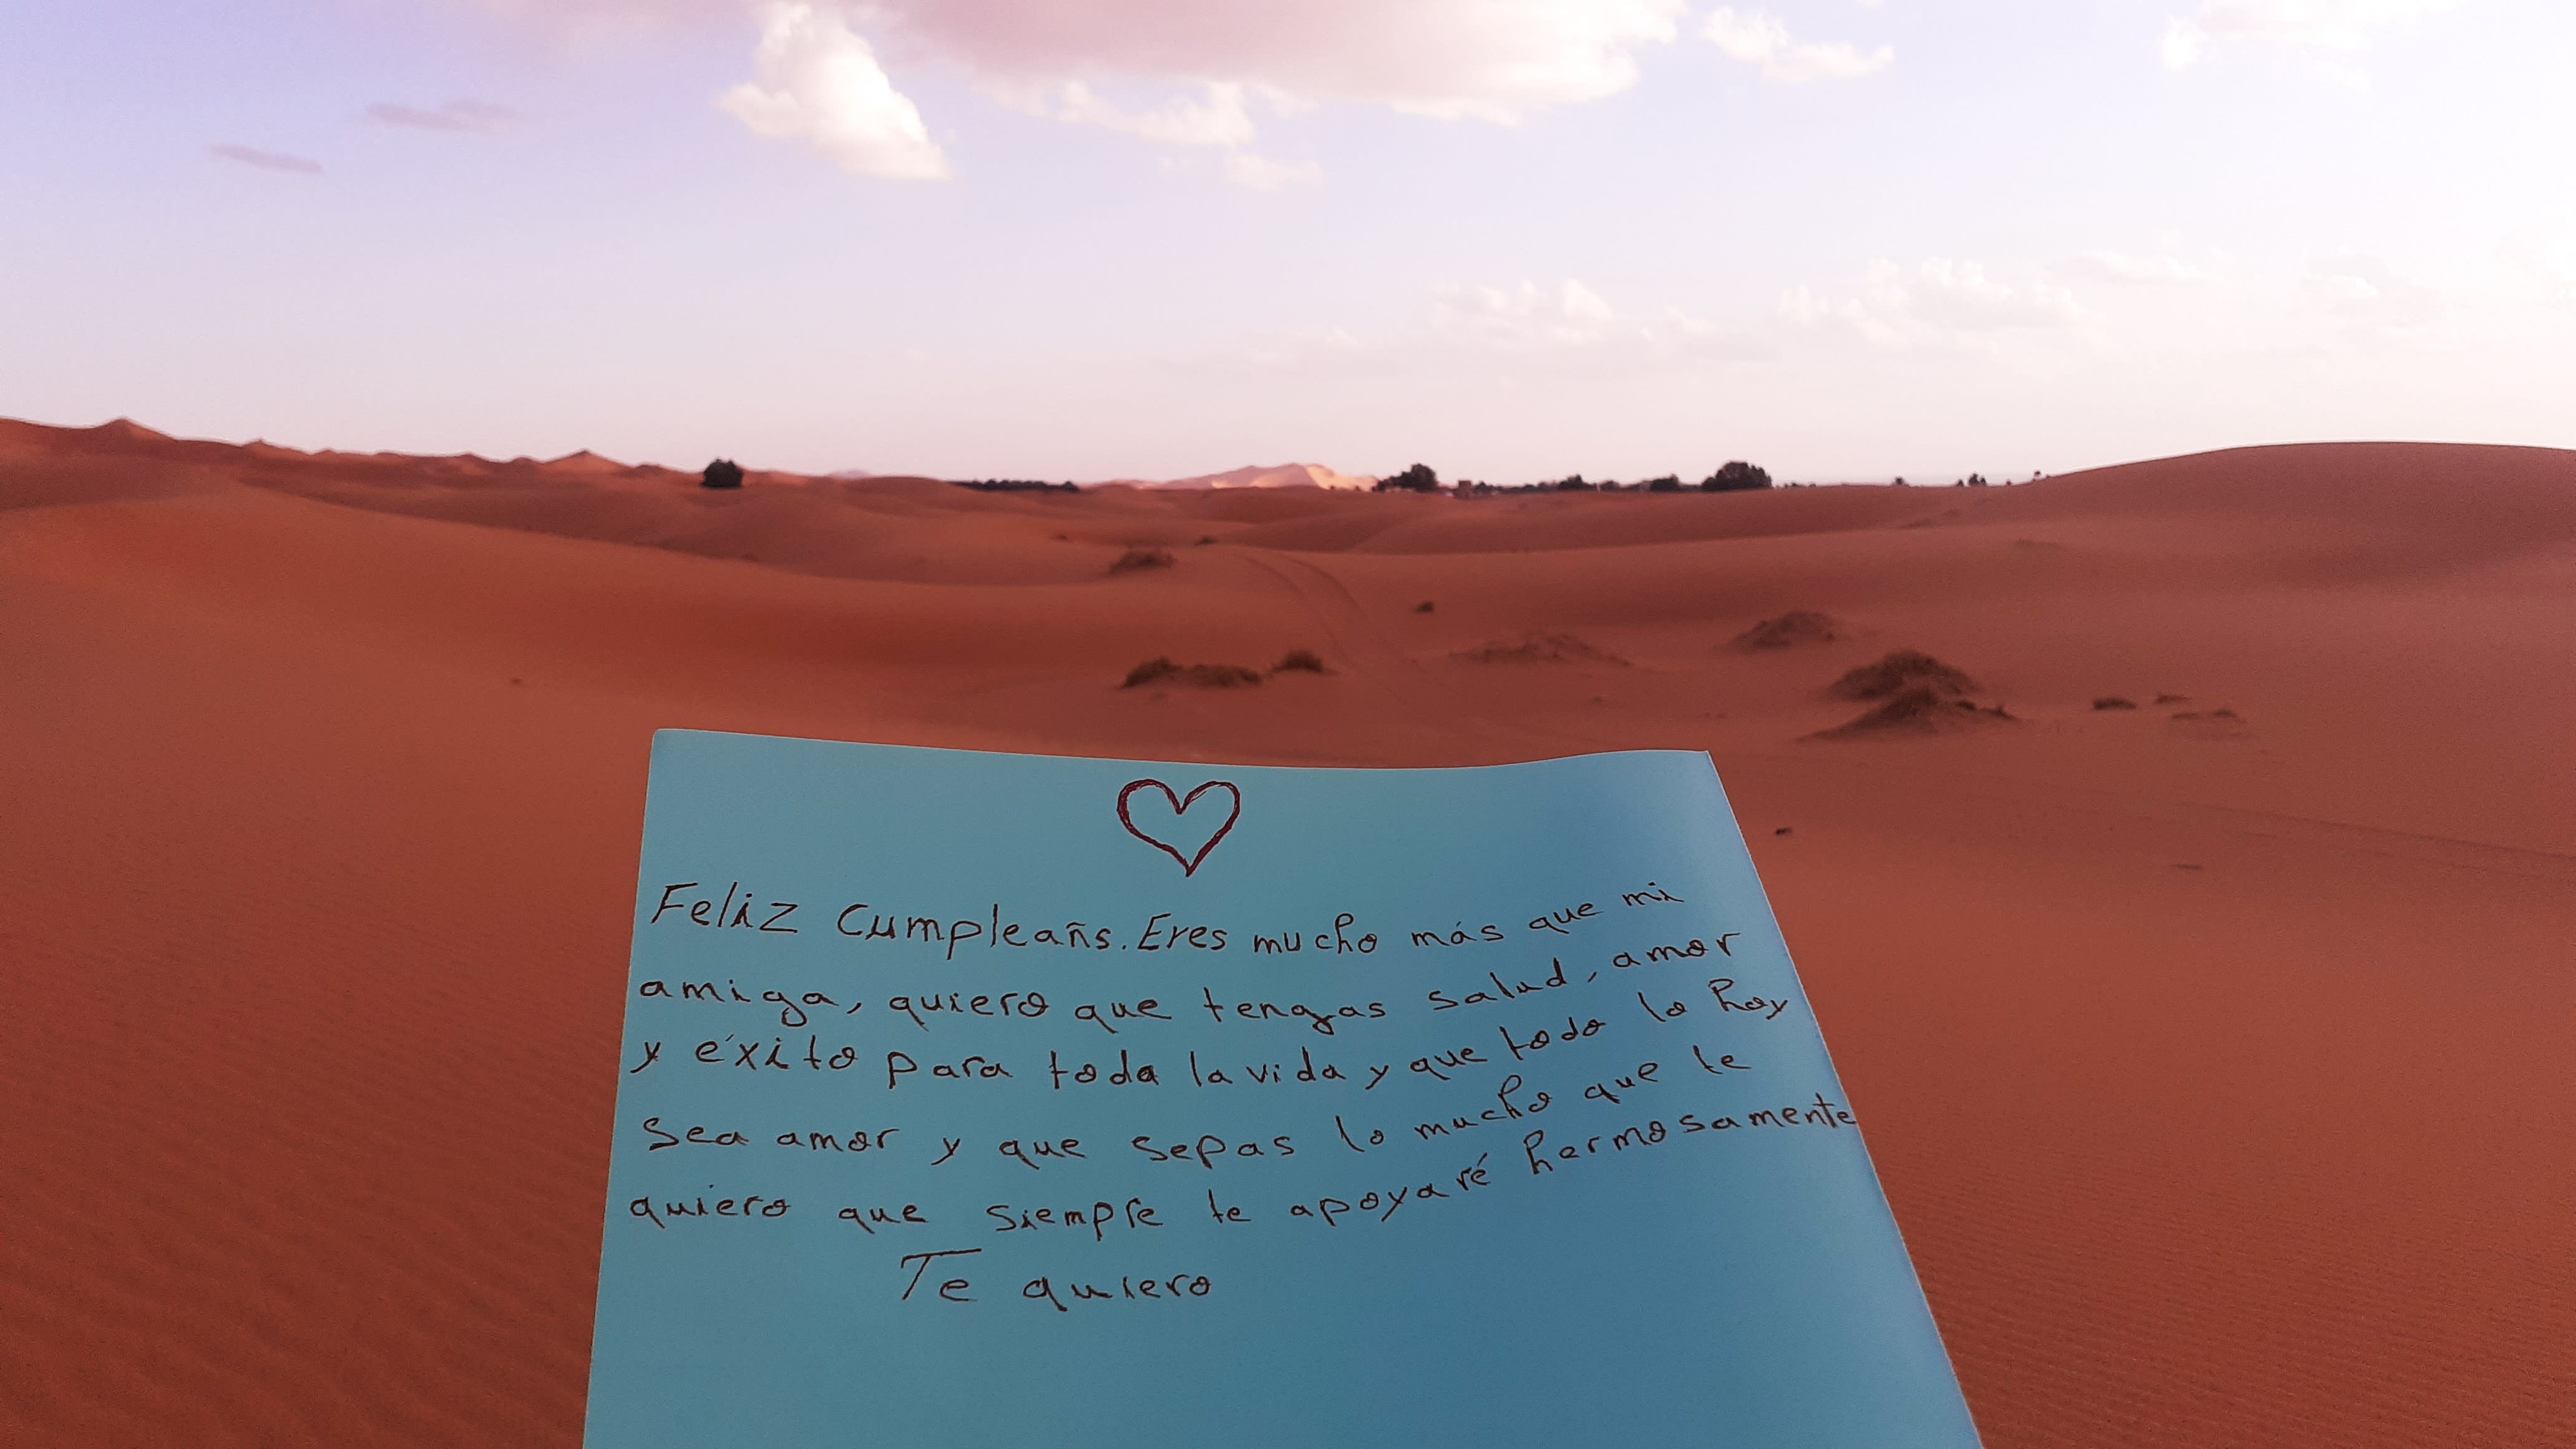 Feliz Cumpleañs. Eres mucho más que mi
amiga, quiero que tengas salud, amor
y éxito para toda la vida y que todo lo hay
sea amor y que sepas lo mucho que te
quiero que siempre te apoyaré hermosamente
Te quiero